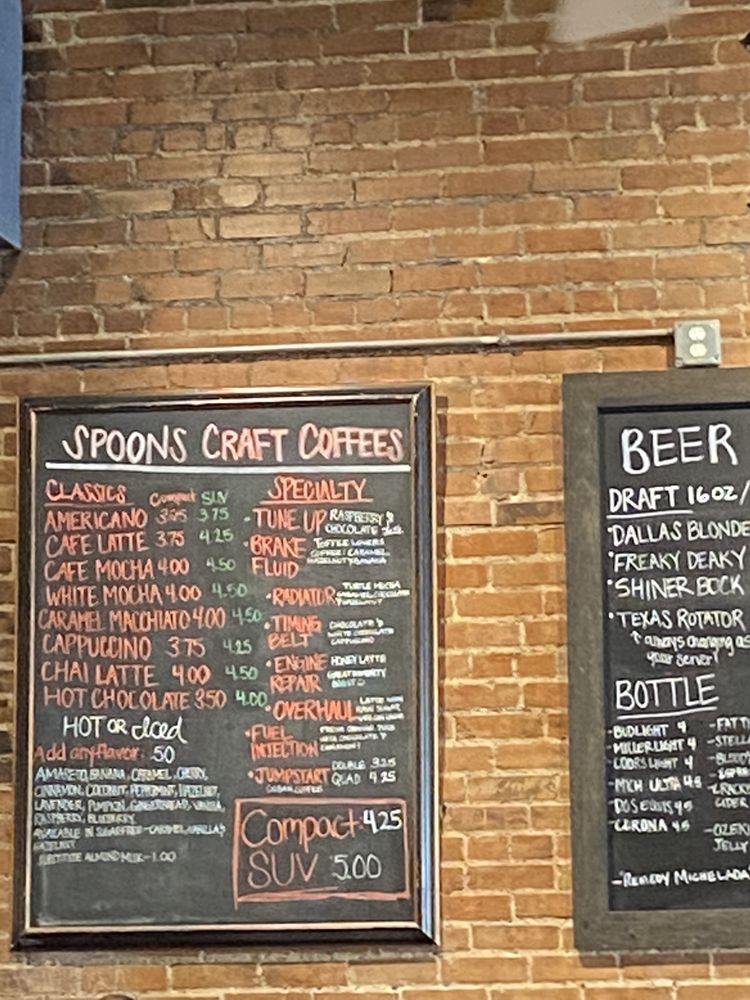 SPOONS CRAFT COFFEES
CLASSICS Compact SUV
AMERICANO 3.75
CAFE LATTE 3.75 4.25
CAFE MOCHA 4.00 4.50
WHITE MOCHA 4.00 4.50
CARAMEL MACCHIATO 4.00 4.50
CAPPUCCINO 3.75 4.25
CHAI LATTE 4.00 4.50
HOT CHOCOLATE 3.50 4.00
HOT OR iced
Add any flavor .50
AMARETO, BANANA, CARAMEL, CHERRY,
CINNAMON, COCONUT, PEPPERMINT, HAZELNUT,
LAVENDER, PUMPKIN, GINGERBREAD, VANILLA,
RASPBERRY, BLUEBERRY
AVAILABLE IN SUGARFREE-CARAMEL, VANILLA &
HAZELNUT
SUBSTITUTE ALMOND MILK-1.00
SPECIALTY
• TUNE UP RASPBERRY &
CHOCOLATE
• BRAKE FLUID TOFFEE LOVERS
COFFEE! CARAMEL,
HAZELNUT & BANANA
• RADIATOR TURTLE MOCHA
CARAMEL, CHOCOLATE
& HAZELNUT
• TIMING BELT CHOCOLATE &
WHITE CHOCOLATE
CAPPUCCINO
• ENGINE REPAIR HONEY LATTE
GREAT IMMUNITY
BOOST
• OVERHAUL LATTE WITH
RAW SUGAR
• FUEL INJECTION
• JUMPSTART DOUBLE 3.25
QUAD 4.25
CUBAN COFFEE
Compact 4.25
SUV 5.00
BEER
DRAFT 16OZ/
• DALLAS BLONDE
• FREAKY DEAKY
• SHINER BOCK
• TEXAS ROTATOR
↑ always changing as
your server!
BOTTLE
-BUDLIGHT 4
-MILLER LIGHT 4
-COORS LIGHT 4
-MICH ULTRA 4.5
-DOS EQUIS 4.5
-CORONA 4.5
-FAT T
-STELL
-BLOOD
CIDER
-OZEK
JELLY
-REMEDY MICHELADA